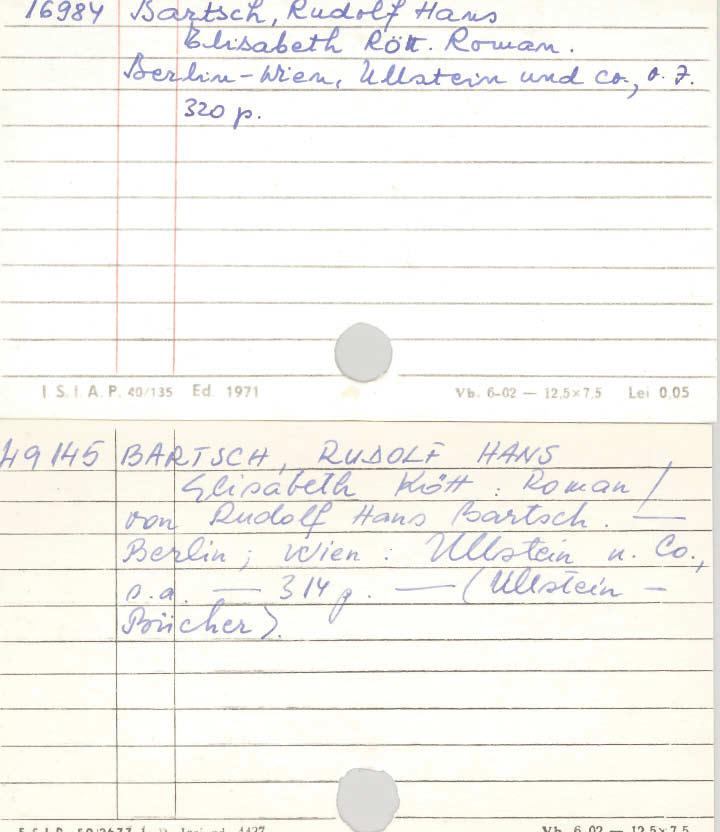 16984 Bartsch, Rudolf Hans
Elisabeth Rött. Roman.
Berlin-Wien, Ullstein und co., o. J.
320 p.
I. S. I. A. P. 40/135 Ed. 1971
Vb. 6-02 — 12,5×7,5 Lei 0,05
49145 BARTSCH, RUDOLF HANS
Elisabeth Kött : Roman /
von Rudolf Hans Bartsch. —
Berlin ; Wien : Ullstein u. Co.,
s.a. — 314 p. — (Ullstein -
Bücher).
Vb. 6-02 — 12,5×7,5